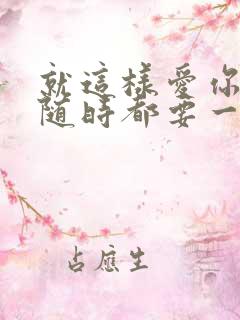 就這樣愛你
随時都要一
占應生